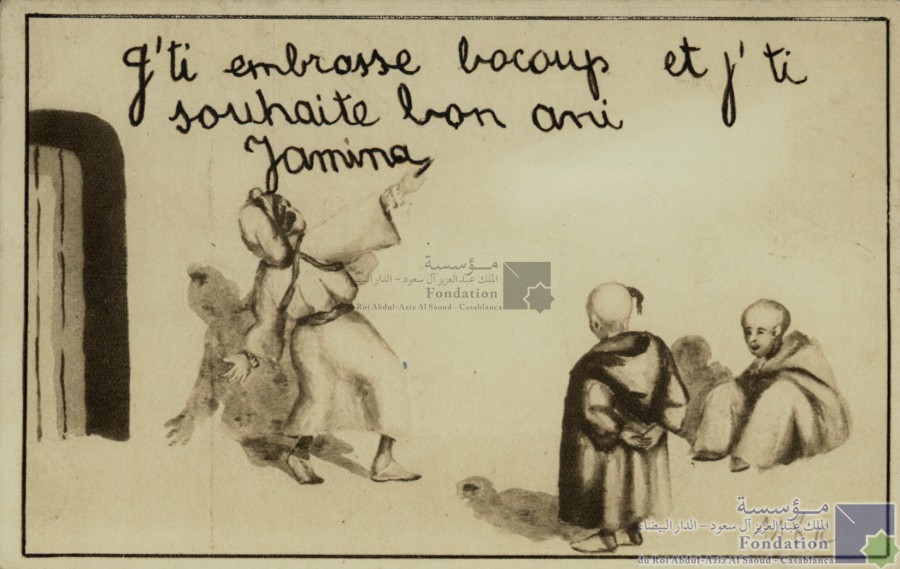 g'ti embrasse bocoup et j' ti
souhaite bon ani
Jamina
مؤسسة
الملك عبد العزيز آل سعود - الدار البيضاء
Fondation
du Roi Abdul-Aziz Al Saoud - Casablanca
مؤسسة
الملك عبد العزيز آل سعود - الدار البيضاء
Fondation
du Roi Abdul-Aziz Al Saoud - Casablanca